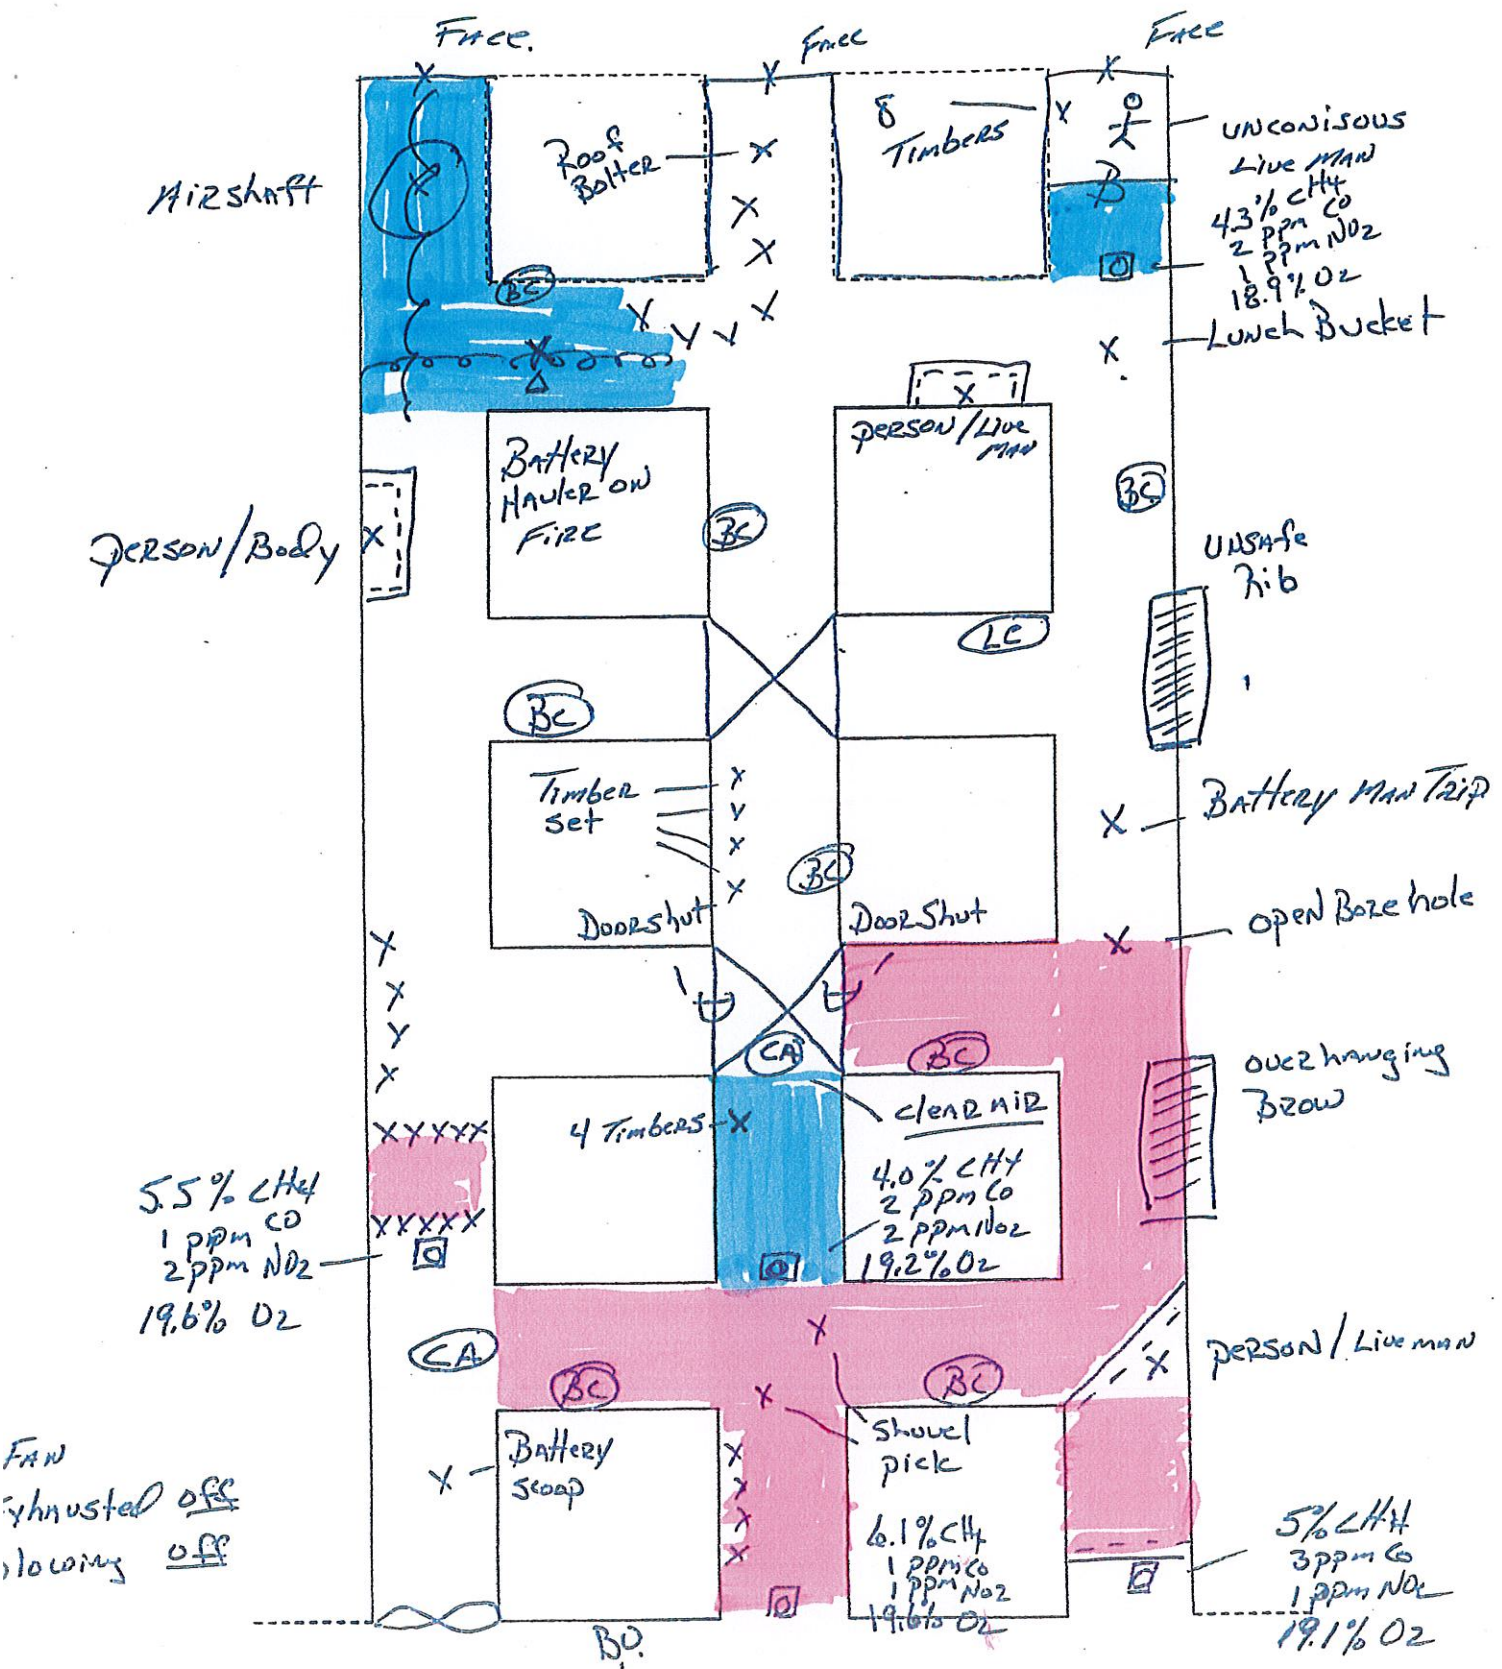 Face.
Face
Face
Airshaft
Roof
Bolter
8
Timbers
B
UNCONISOUS
Live MAN
4.3% CH4
2 ppm CO
1 ppm NO2
18.9% O2
Lunch Bucket
BC
person/Live
MAN
Battery
Hauler on
Fire
BC
BC
person/Body
UNSAfe
Rib
LC
BC
Timber
set
BC
Battery Man Trip
Door shut
Door Shut
open Bore hole
CA
BC
overhanging
Brow
clear air
4 Timbers
4.0% CH4
2 ppm CO
2 ppm NO2
19.2% O2
5.5% CH4
1 ppm CO
2 ppm NO2
19.6% O2
CA
BC
BC
person/Liveman
Battery
scoop
shovel
pick
FAN
exhausted off
blowing off
6.1% CH4
1 ppm CO
1 ppm NO2
19.6% O2
5% CH4
3 ppm CO
1 ppm NO2
19.1% O2